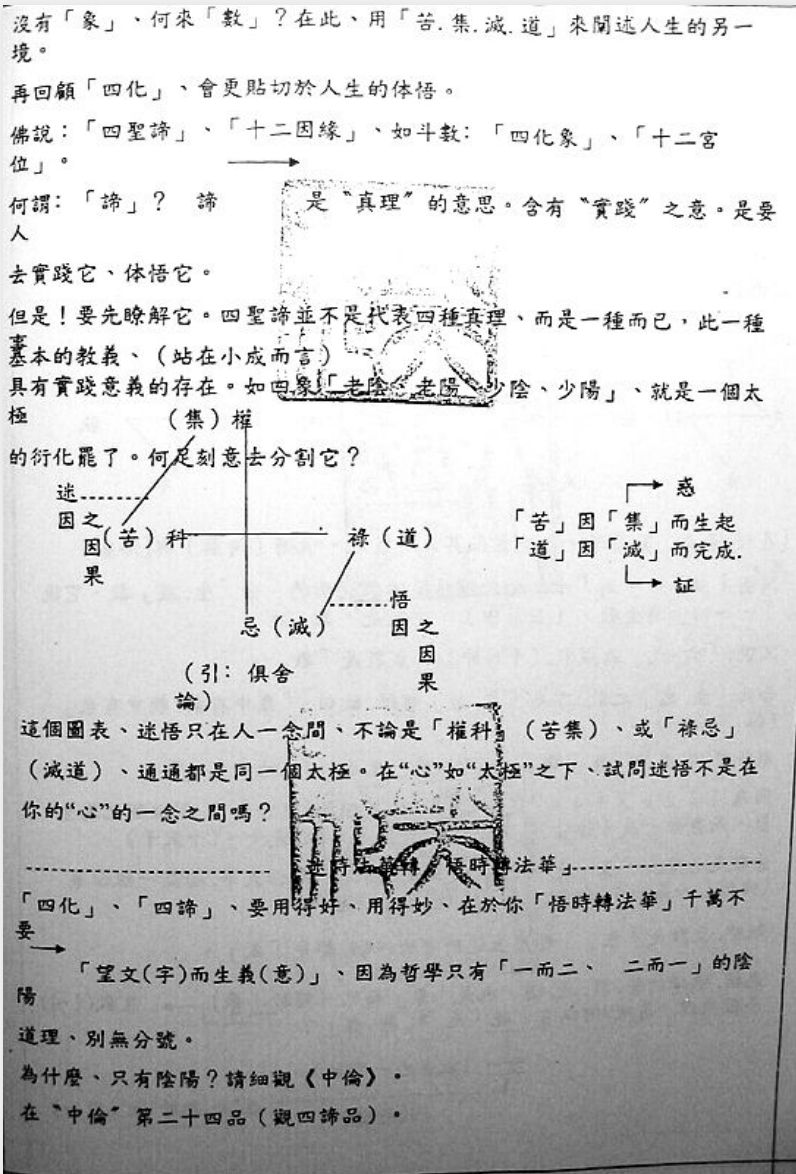 沒有「象」、何來「數」？在此、用「苦.集.滅.道」來闡述人生的另一
境。
再回顧「四化」、會更貼切於人生的体悟。
佛說：「四聖諦」、「十二因緣」、如斗數：「四化象」、「十二宮
位」。
何謂：「諦」？ 諦 是〝真理〞的意思。含有〝實踐〞之意。是要
人
去實踐它、体悟它。
但是！要先瞭解它。四聖諦並不是代表四種真理、而是一種而已，此一種
基本的教義、（站在小成而言）
具有實踐意義的存在。如四象「老陰、老陽、少陰、少陽」、就是一個太
極
（集）權
的衍化罷了。何足刻意去分割它？
迷
因之因果
（苦）科
祿（道）
忌（滅）
悟
因之因果
惑
「苦」因「集」而生起
「道」因「滅」而完成.
証
（引：俱舍
論）
這個圖表、迷悟只在人一念間、不論是「權科」（苦集）、或「祿忌」
（滅道）、通通都是同一個太極。在“心”如“太極”之下、試問迷悟不是在
你的“心”的一念之間嗎？
迷時法華轉、悟時轉法華」
「四化」、「四諦」、要用得好、用得妙、在於你「悟時轉法華」千萬不
要
「望文(字)而生義(意)」、因為哲學只有「一而二、 二而一」的陰
陽
道理、別無分號。
為什麼、只有陰陽？請細觀《中倫》。
在〝中倫〞第二十四品（觀四諦品）。